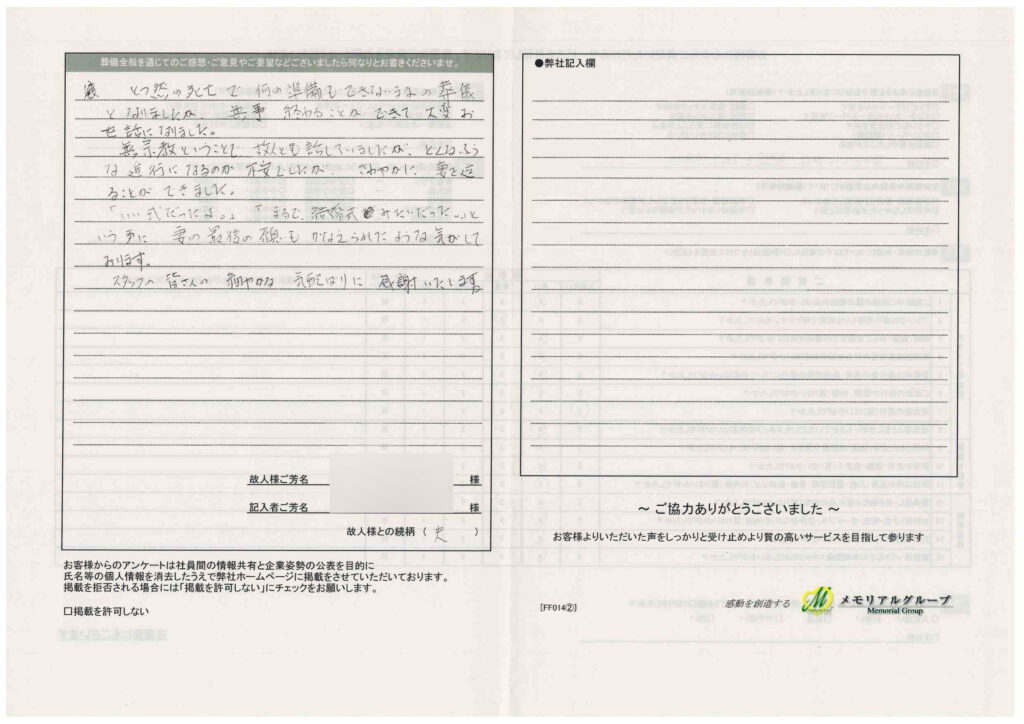 葬儀全般を通じてのご感想・ご意見やご要望などございましたら何なりとお書きくださいませ。
とつ然の死亡で何の準備もできないままの葬儀
となりましたが、無事終わることができて大変お
世話になりました。
無宗教ということで故人とも話していましたが、どんなふう
な進行になるのか不安でしたが、さわやかに妻を送
ることができました。
「いい式だったよ。」「まるで、結婚式みたいだった。」と
いう声に妻の最後の願いもかなえられたような気がして
おります。
スタッフの皆さんの細やかな気配りに感謝いたします。
故人様ご芳名 様
記入者ご芳名 様
故人様との続柄（夫）
お客様からのアンケートは社員間の情報共有と企業姿勢の公表を目的に
氏名等の個人情報を消去したうえで弊社ホームページに掲載をさせていただいております。
掲載を拒否される場合には「掲載を許可しない」にチェックをお願いします。
□掲載を許可しない
●弊社記入欄
～ ご協力ありがとうございました ～
お客様よりいただいた声をしっかりと受け止めより質の高いサービスを目指して参ります
[FF014②]
感動を創造する
メモリアルグループ
Memorial Group